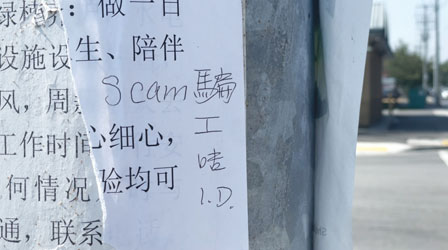 绿植养：做一日
设施设生、陪伴
风，周
工作时间心细心，
何情况验均可
通，联系
Scam 騙
工
咭
I.D.